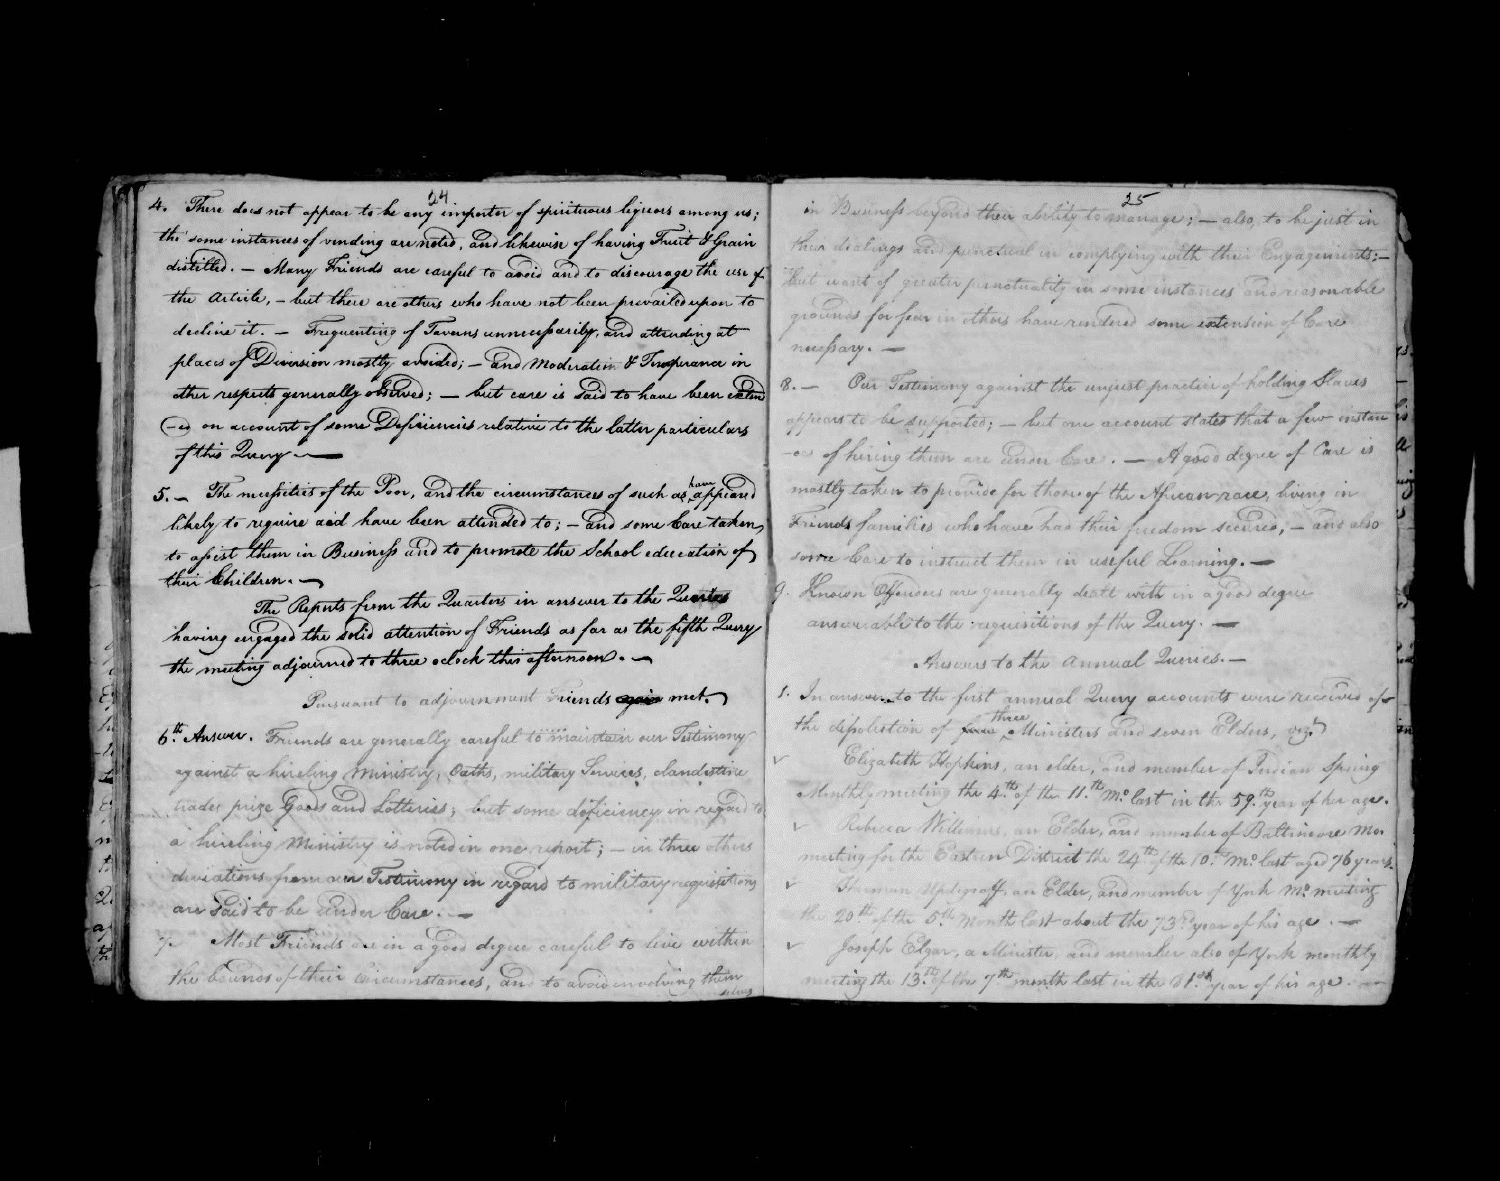 24
4. There does not appear to be any importer of spirituous liquors among us;
tho' some instances of vending are noted, and likewise of having Fruit & Grain
distilled. — Many Friends are careful to avoid and to discourage the use of
the article, – but there are others who have not been prevailed upon to
decline it. — Frequenting of Taverns unnecessarily, and attending at
places of Diversion mostly avoided; – and Moderation & Temperance in
other respects generally observed; – but care is said to have been exten
-ed on account of some Deficiencies relative to the latter particulars
of this Query —
5. – The necessities of the Poor, and the circumstances of such as have appeared
likely to require aid have been attended to; – and some Care taken,
to assist them in Business and to promote the School education of
their Children. —
The Reports from the Quarters in answer to the Queries
having engaged the solid attention of Friends as far as the fifth Query
the meeting adjourned to three oclock this afternoon. —
Pursuant to adjournment Friends again met.
6th. Answer. Friends are generally careful to maintain our Testimony
against a hireling Ministry, Oaths, military Services, clandestine
trade, prize Goods and Lotteries; but some deficiency in regard to
a hireling Ministry is noted in one report; – in three others
deviations from our Testimony in regard to military requisitions
are said to be under Care. —
7. Most Friends are in a good degree careful to live within
the bounds of their Circumstances, and to avoid involving them
selves
25
in Business beyond their ability to manage; – also, to be just in
their dealings and punctual in complying with their Engagements; –
but want of greater punctuality in some instances and reasonable
grounds for fear in others have rendered some extension of Care
necessary. —
8. — Our Testimony against the unjust practice of holding Slaves
appears to be supported; – but one account states that a few instan
-ces of hiring them are under Care. — A good degree of Care is
mostly taken to provide for those of the African race, living in
Friends families who have had their freedom secured, – and also
some Care to instruct them in useful Learning. —
9. Known Offenders are generally dealt with in a good degree
answerable to the requisitions of the Query. —
Answers to the Annual Queries. —
1. In answer to the first annual Query accounts were received of
the dissolution of four three Ministers and seven Elders, vizt
Elizabeth Hopkins, an elder, and member of Indian Spring
Monthly meeting the 4th. of the 11th. Mo. last in the 59th. year of her age.
Rebecca Williams, an Elder, and member of Baltimore Mo.
meeting for the Eastern District the 24th of the 10th. Mo. last aged 76 years.
Harman Updegraff, an Elder, and member of York Mo. meeting
the 20th of the 5th Month last about the 73rd year of his age. —
Joseph Elgar, a Minister, and member also of York monthly
meeting the 13th. of the 7th month last in the 81st year of his age. —